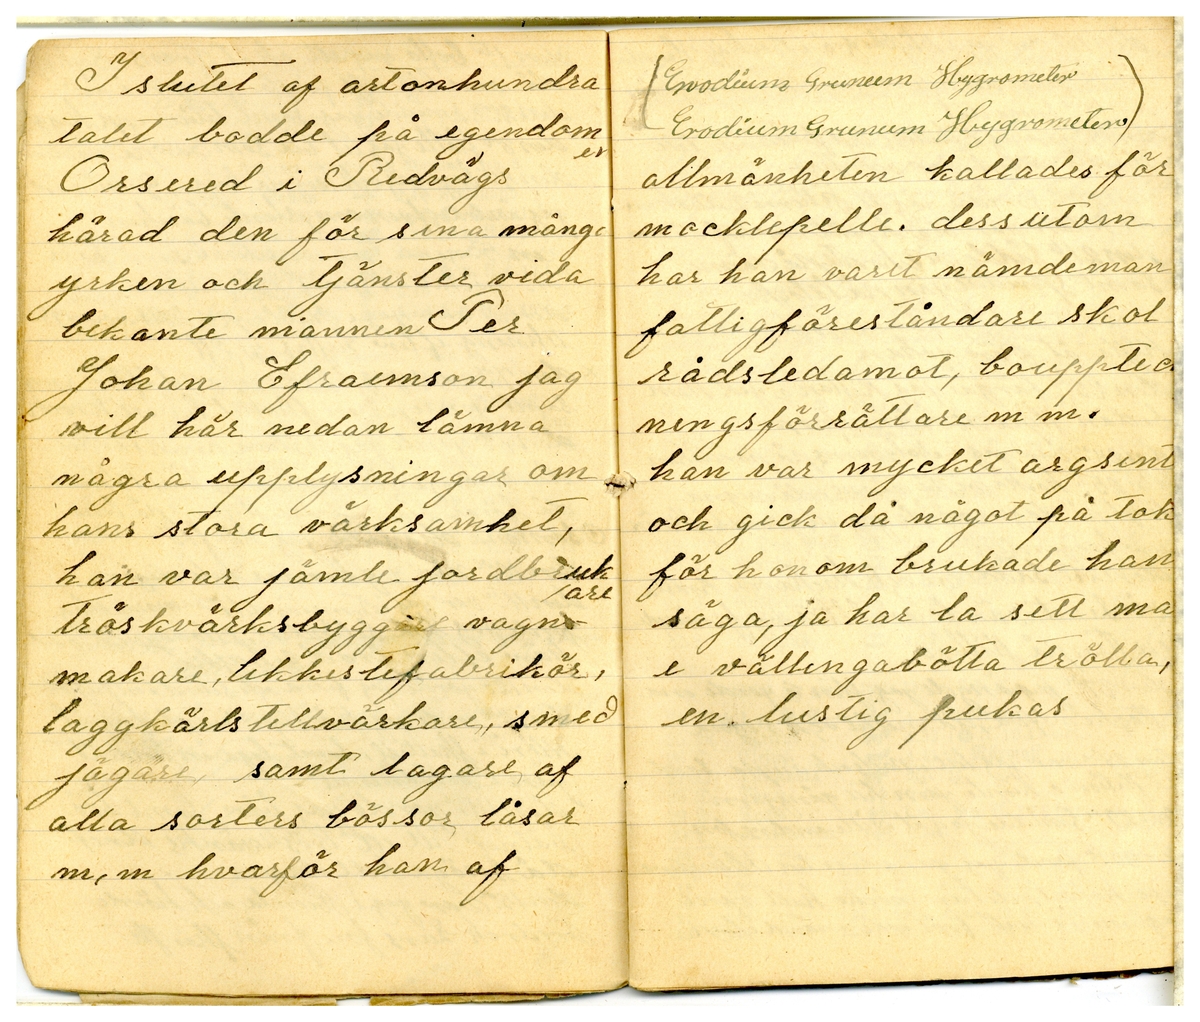 I slutet af artonhundra
talet bodde på egendom
en
Orsered i Redvägs
härad den för sina många
yrken och tjänster vida
bekante mannen Per
Johan Efraemson jag
vill här nedan lämna
några upplysningar om
hans stora värksamhet,
han var jämte jordbruk
are
tröskvärksbyggare vagn-
makare, likkistefabrikör,
laggkärlstillvärkare, smed
jägare, samt lagare af
alla sorters bössor låsar
m, m hvarför han af
(Erodium Gruneum Hygrometer
Erodium Grunum Hygrometer)
allmänheten kallades för
mocklepelle. dessutom
har han varit nämdeman
fattigföreståndare skol
rådsledamot, bouppteck
ningsförrättare m m.
han var mycket argsint
och gick då något på tok
för honom brukade han
säga, ja har la sett ma
e vällingabötta trölla,
en lustig pukas